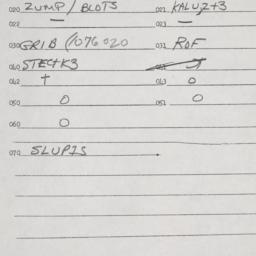 020 ZUMP/BLOTS 021 KALUZ+3
022 — 023 —
030 GRIB (1076020 031 ROF
040 STECHK3
042 † 043 0
050 0 051 0
060 0
070 SLUPIS